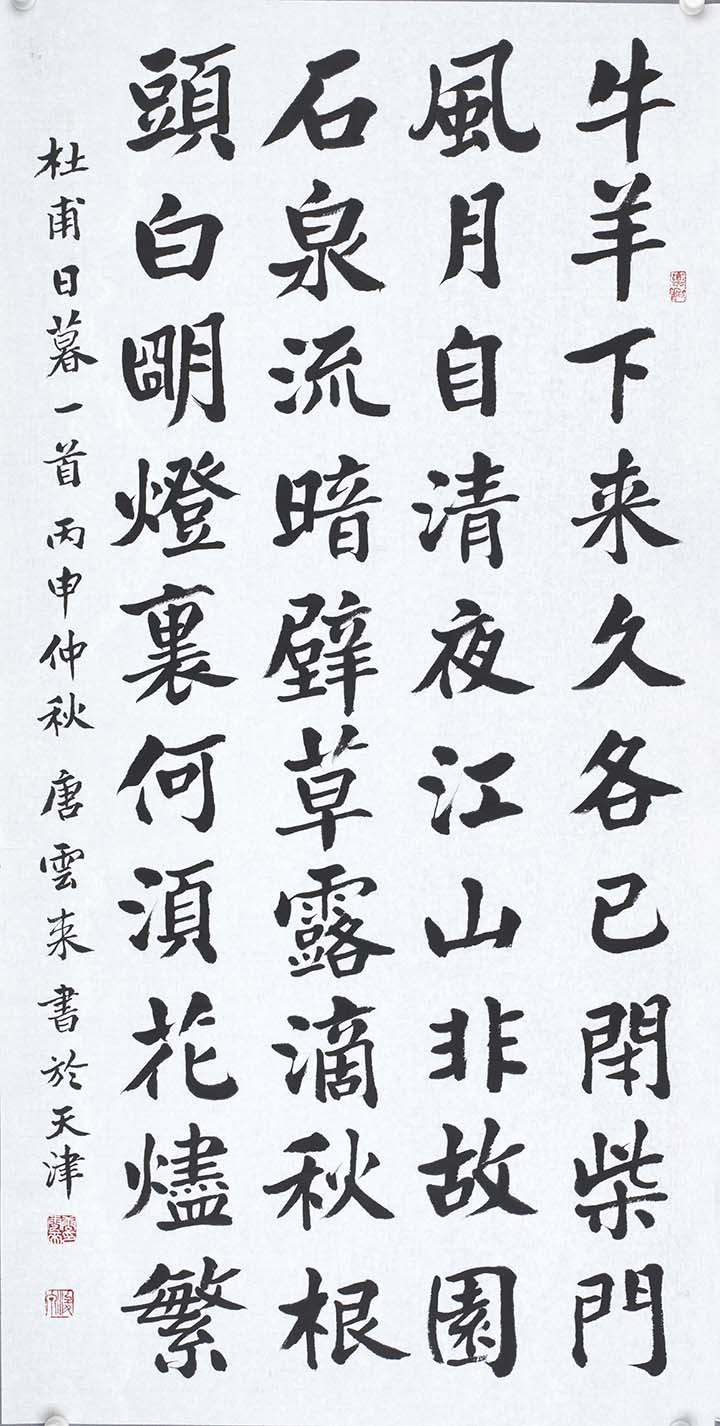 牛羊下来久各已閇柴門
風月自清夜江山非故園
石泉流暗壁草露滴秋根
頭白明燈裏何湏花燼繁
杜甫日暮一首丙申仲秋唐雲来書於天津